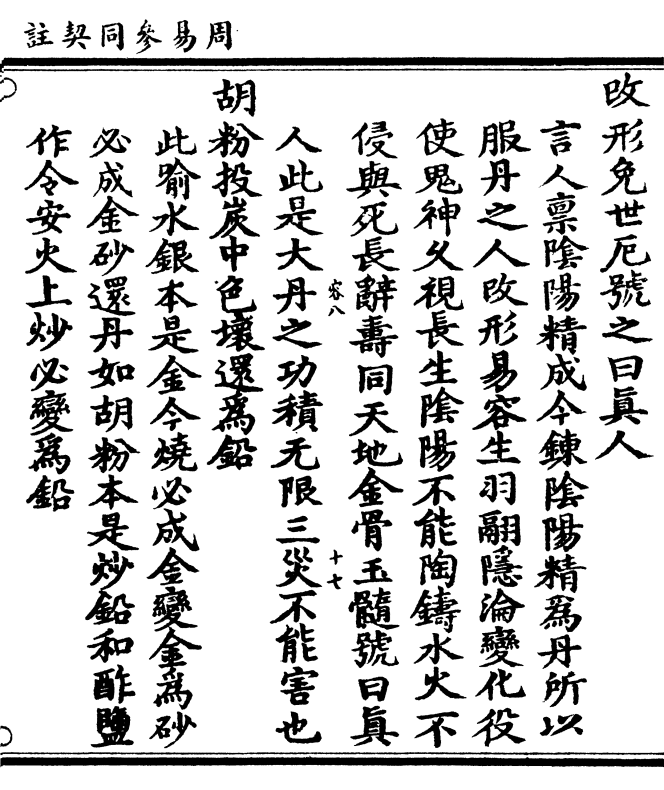 周易參同契註
改形免世厄號之曰眞人
言人禀陰陽精成今鍊陰陽精爲丹所以
服丹之人改形易容生羽翮隱淪變化役
使鬼神久視長生陰陽不能陶鑄水火不
侵與死長辭壽同天地金骨玉髓號曰眞
容八
十七
人此是大丹之功積无限三災不能害也
胡粉投炭中色壞還爲鉛
此喻水銀本是金今燒必成金變金爲砂
必成金砂還丹如胡粉本是炒鉛和酢鹽
作令安火上炒必變爲鉛